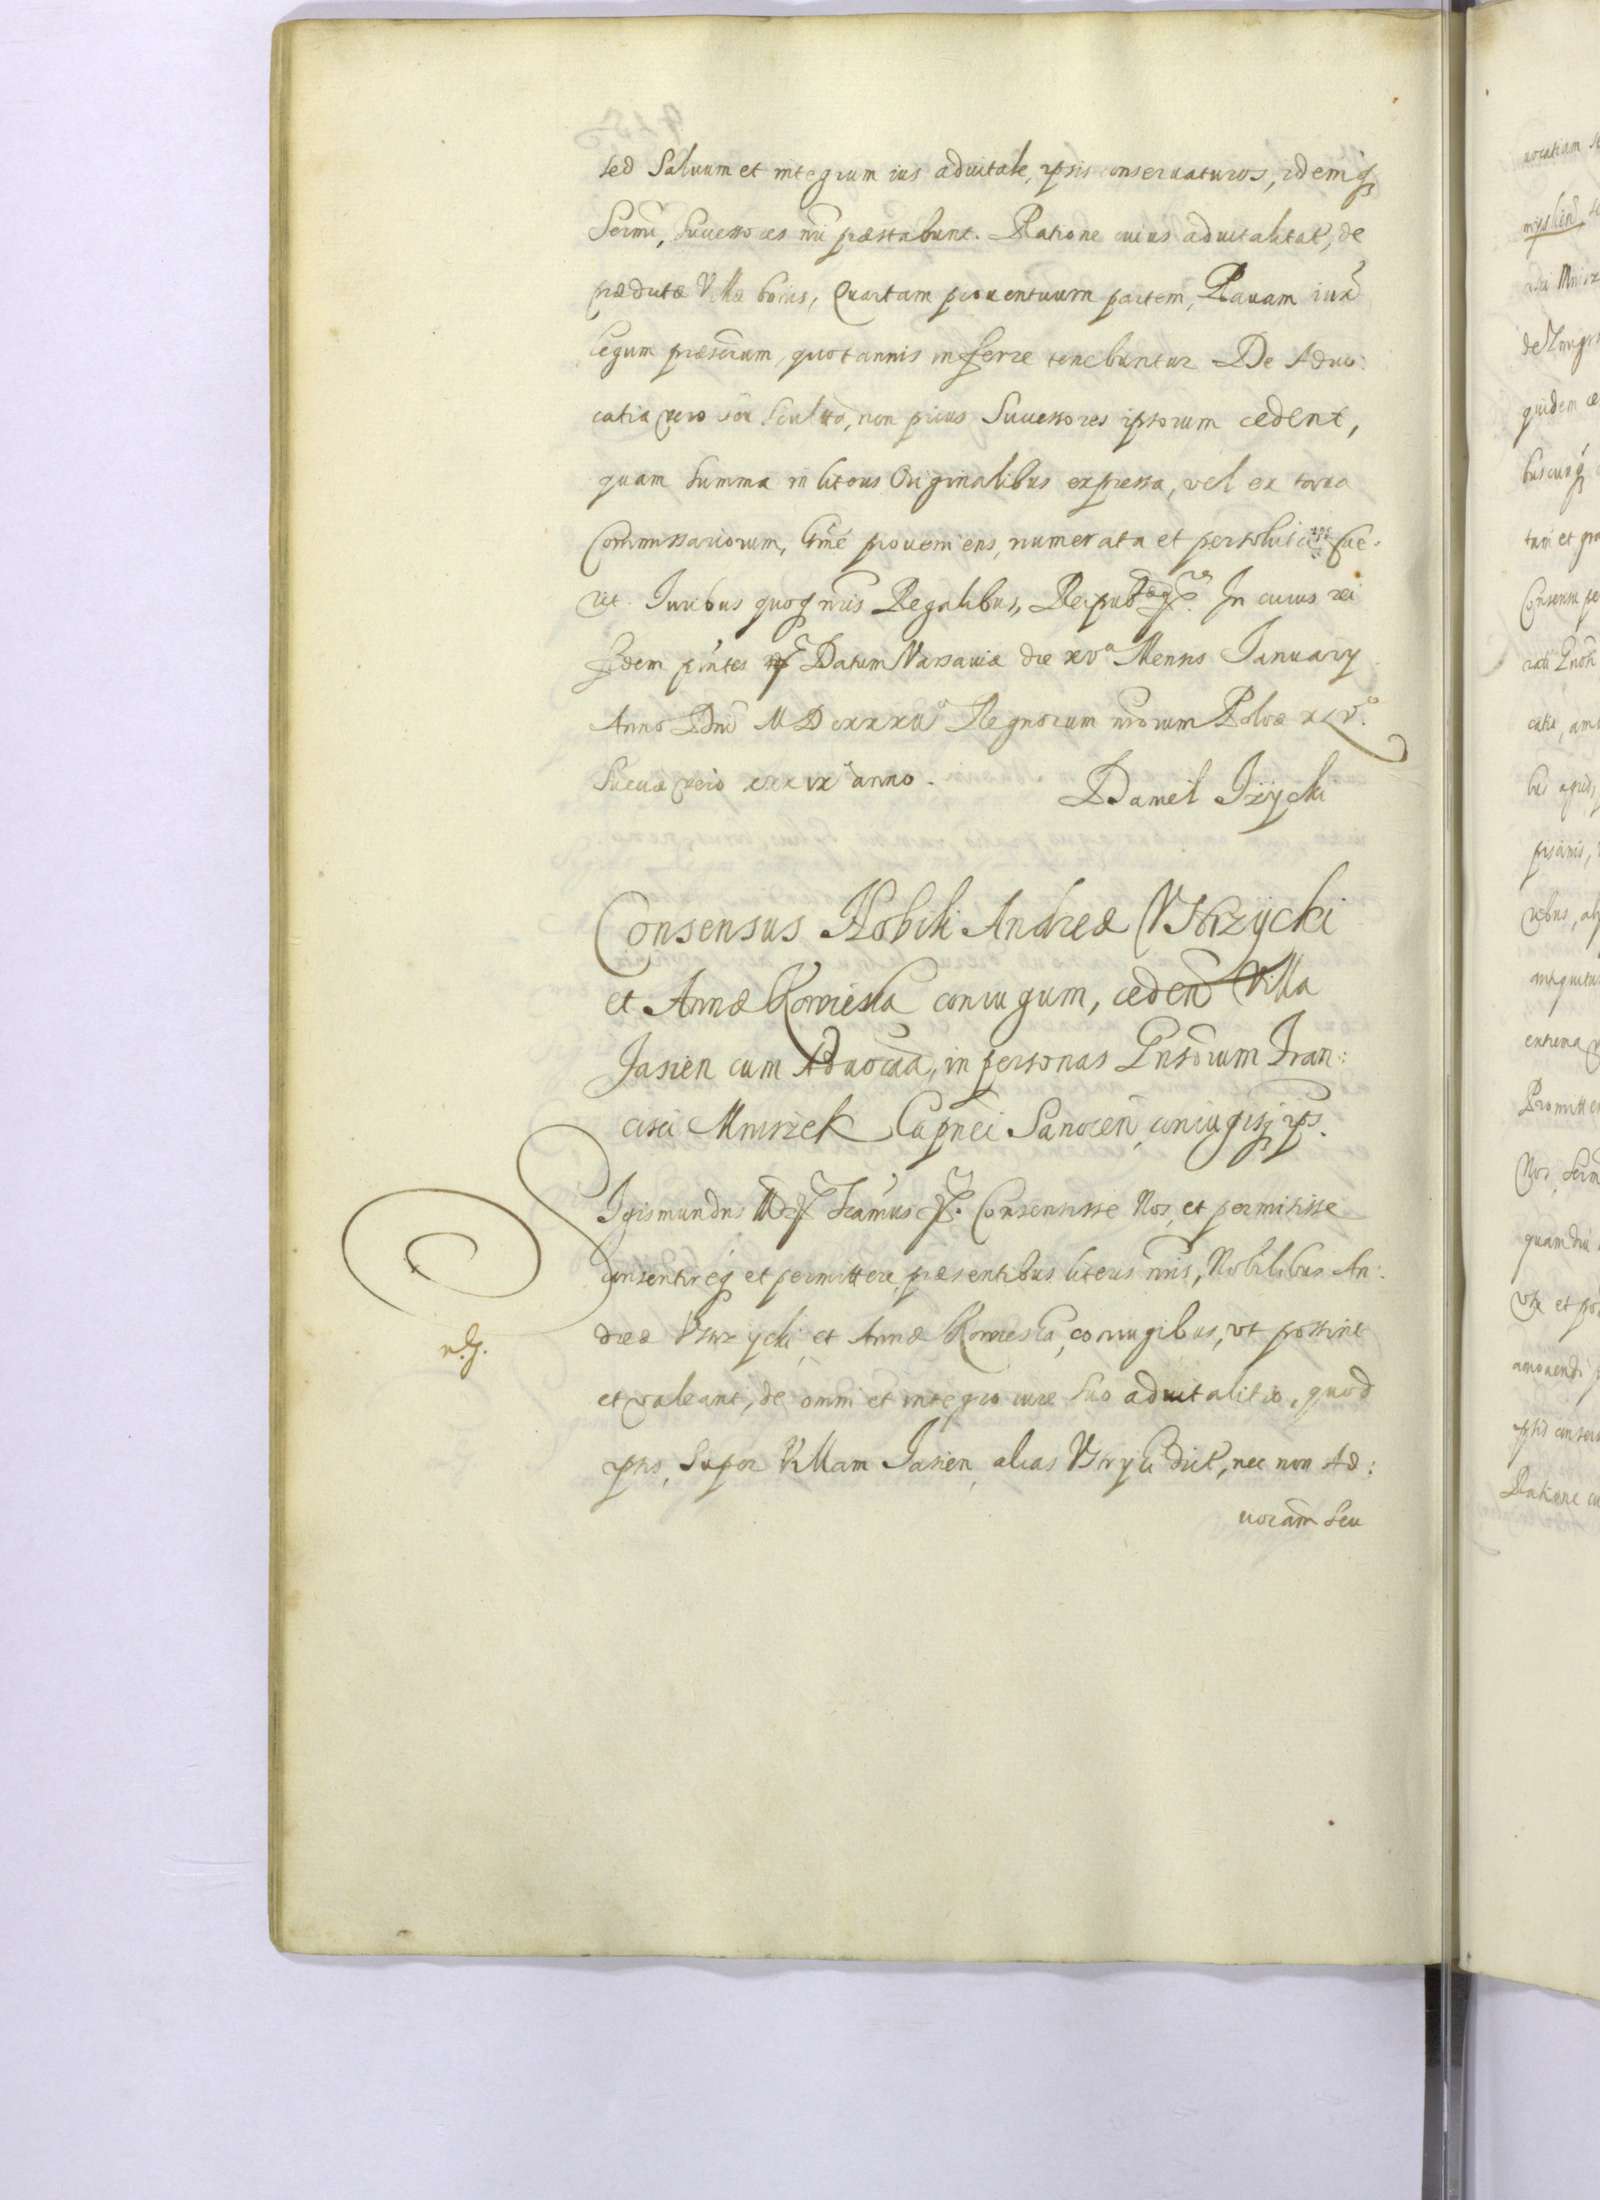 sed Saluum et integrum ius aduitale, ipsis conseruaturos, idemq
Sermi, Successores nri præstabunt. Ratione cuius aduitalitat, de
prædictæ Villæ bonis, Quartam prouentuum partem, Rauam iux
legum præscrium, quotannis inferre tenebuntur De Aduo:
catia vero seu Scultia, non prius Successores ipsorum cedent,
quam Summa in literis Originalibus expressa, vel ex taxa
Commissariorum, ltime proueniens, numerata et persoluta ipsis fue:
rit. Iuribus quoq nris Regalibus, Reipub In cuius rei
fidem pntes Datum Varsauiæ die xva Mensis Ianuary
Anno Dni MDcxxxiio Regnorum nrorum Polæ xLvo
Sueciæ vero xxxixo anno.
Daniel Iżycki
Consensus Nobili Andreæ Vstrzycki
et Annæ Konieska coniugum, ceden Villa
Jasien cum Aduocia, in personas Gnsorum Fran:
cisci Mniszek Capnei Sanocen, coniugisq ips.
Sigismundus Scamus Consensisse Nos, et permisisse
consentireq et permittere præsentibus literis nris, Nobilibus An:
dreæ Vstrzycki et Annæ Konieska, coniugibus, vt possint
n.
et valeant, de omni et integro iure Suo aduitalitio, quod
ipsis, Super Villam Jasien, alias Vstryki dict, nec non Ad:
uocam seu
9
uocatiam
quidem
tum et
Consensu
Promitte
Nos, Serm
quamdiu
Ratione cu